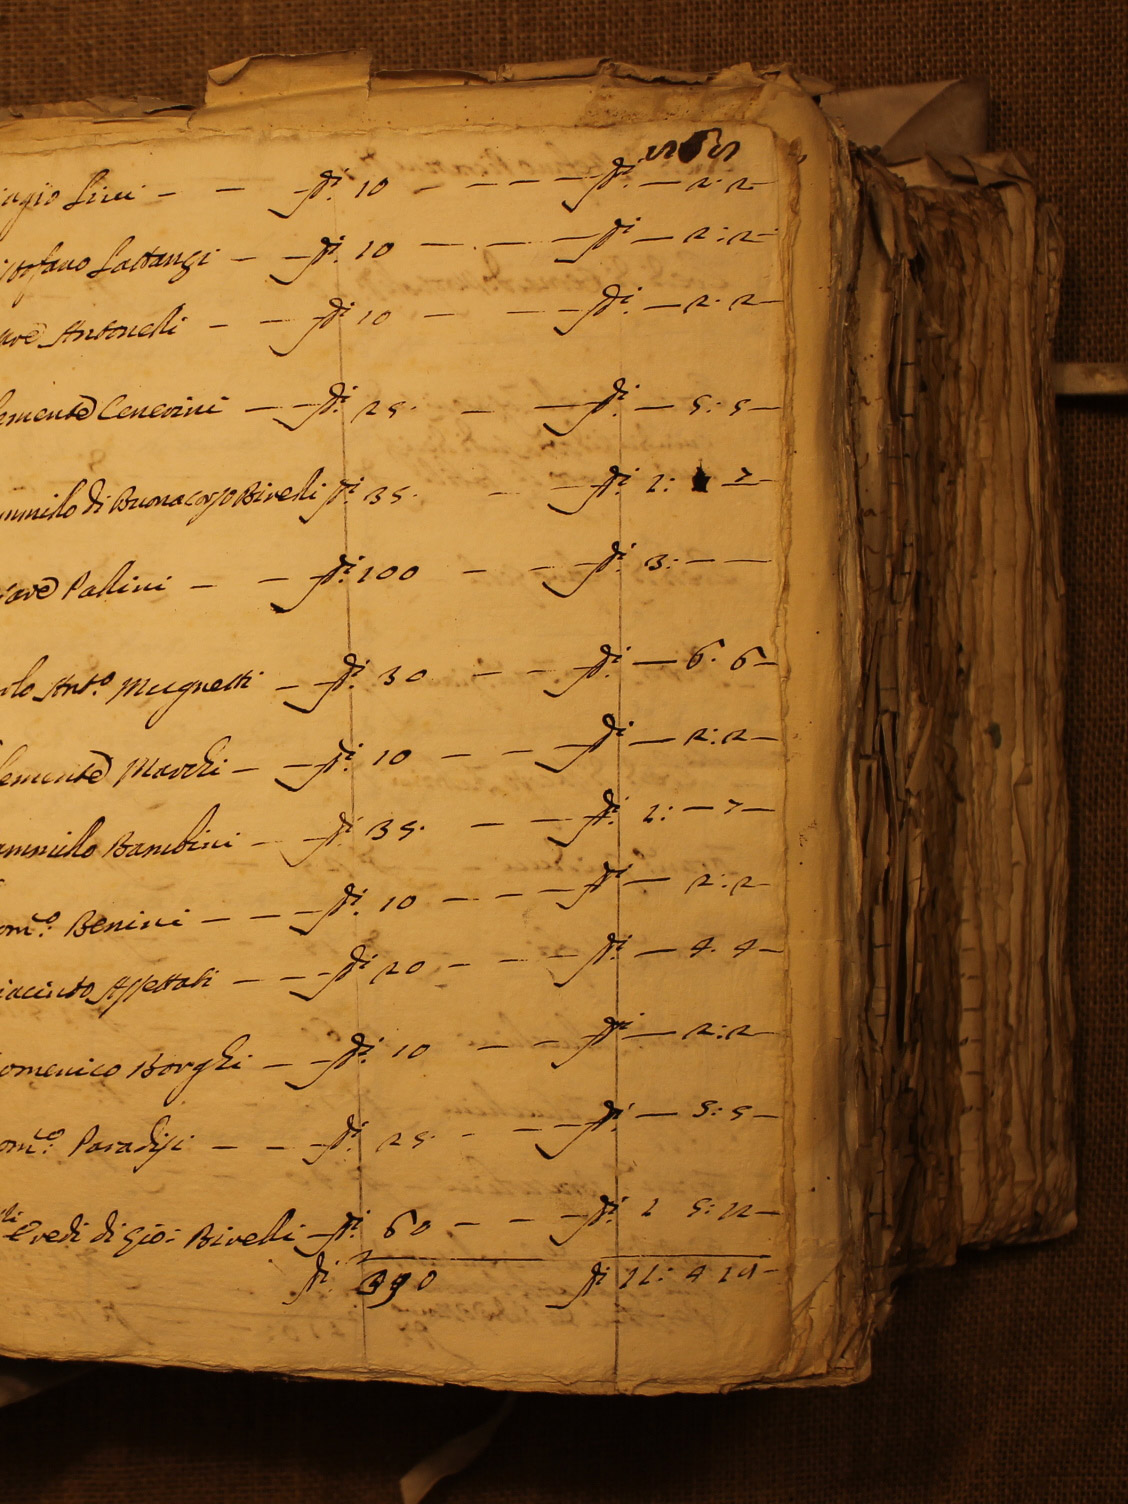 565
agio Lini — — fi: 10 — — — — fi: — 2: 2 —
stofano Lattangi — — fi: 10 — — — fi: — 2: 2 —
avè Antonelli — — fi: 10 — — — fi: — 2: 2 —
lementè Cenerini — — fi: 25 — — fi: — 5: 5 —
ammillo di Buonacorso Birelli fi: 35 — — fi: 1: — 7 —
iavè Pallini — — fi: 100 — — fi: 3: — —
olo Antº Mugnetti — — fi: 30 — — fi: — 6: 6 —
lementè Marchi — — fi: 10 — — — fi: — 2: 2 —
ammillo Bambini — — fi: 35 — — fi: 1: — 7 —
omco: Benini — — — fi: 10 — — — fi: — 2: 2 —
iacinto Assettati — — fi: 20 — — — fi: — 4: 4 —
omenico Borghi — — fi: 10 — — fi: — 2: 2 —
omco: Paradisi — — — fi: 25 — — — fi: — 5: 5 —
li Eredi di Gio: Birelli — fi: 60 — — — fi: 1 5: 12 —
fi: 390 fi: 11: 4 10 —